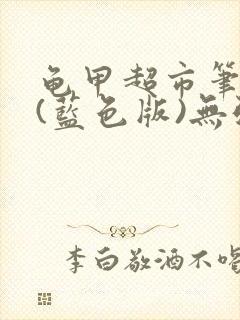 龟甲超市筆
(藍色版)無
李白敬酒不喝